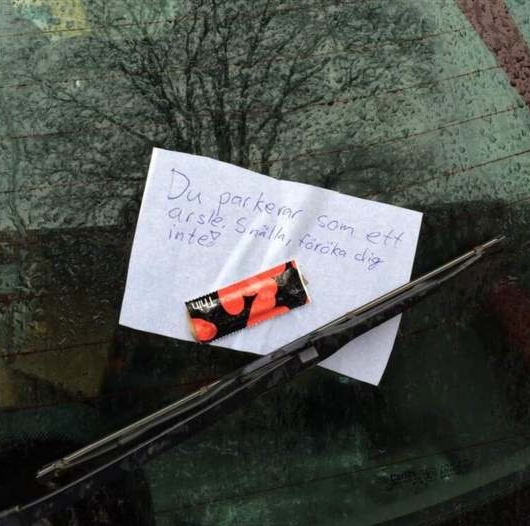 Du parkerar som ett
arsle. Snälla, föröka dig
inte!
Thin